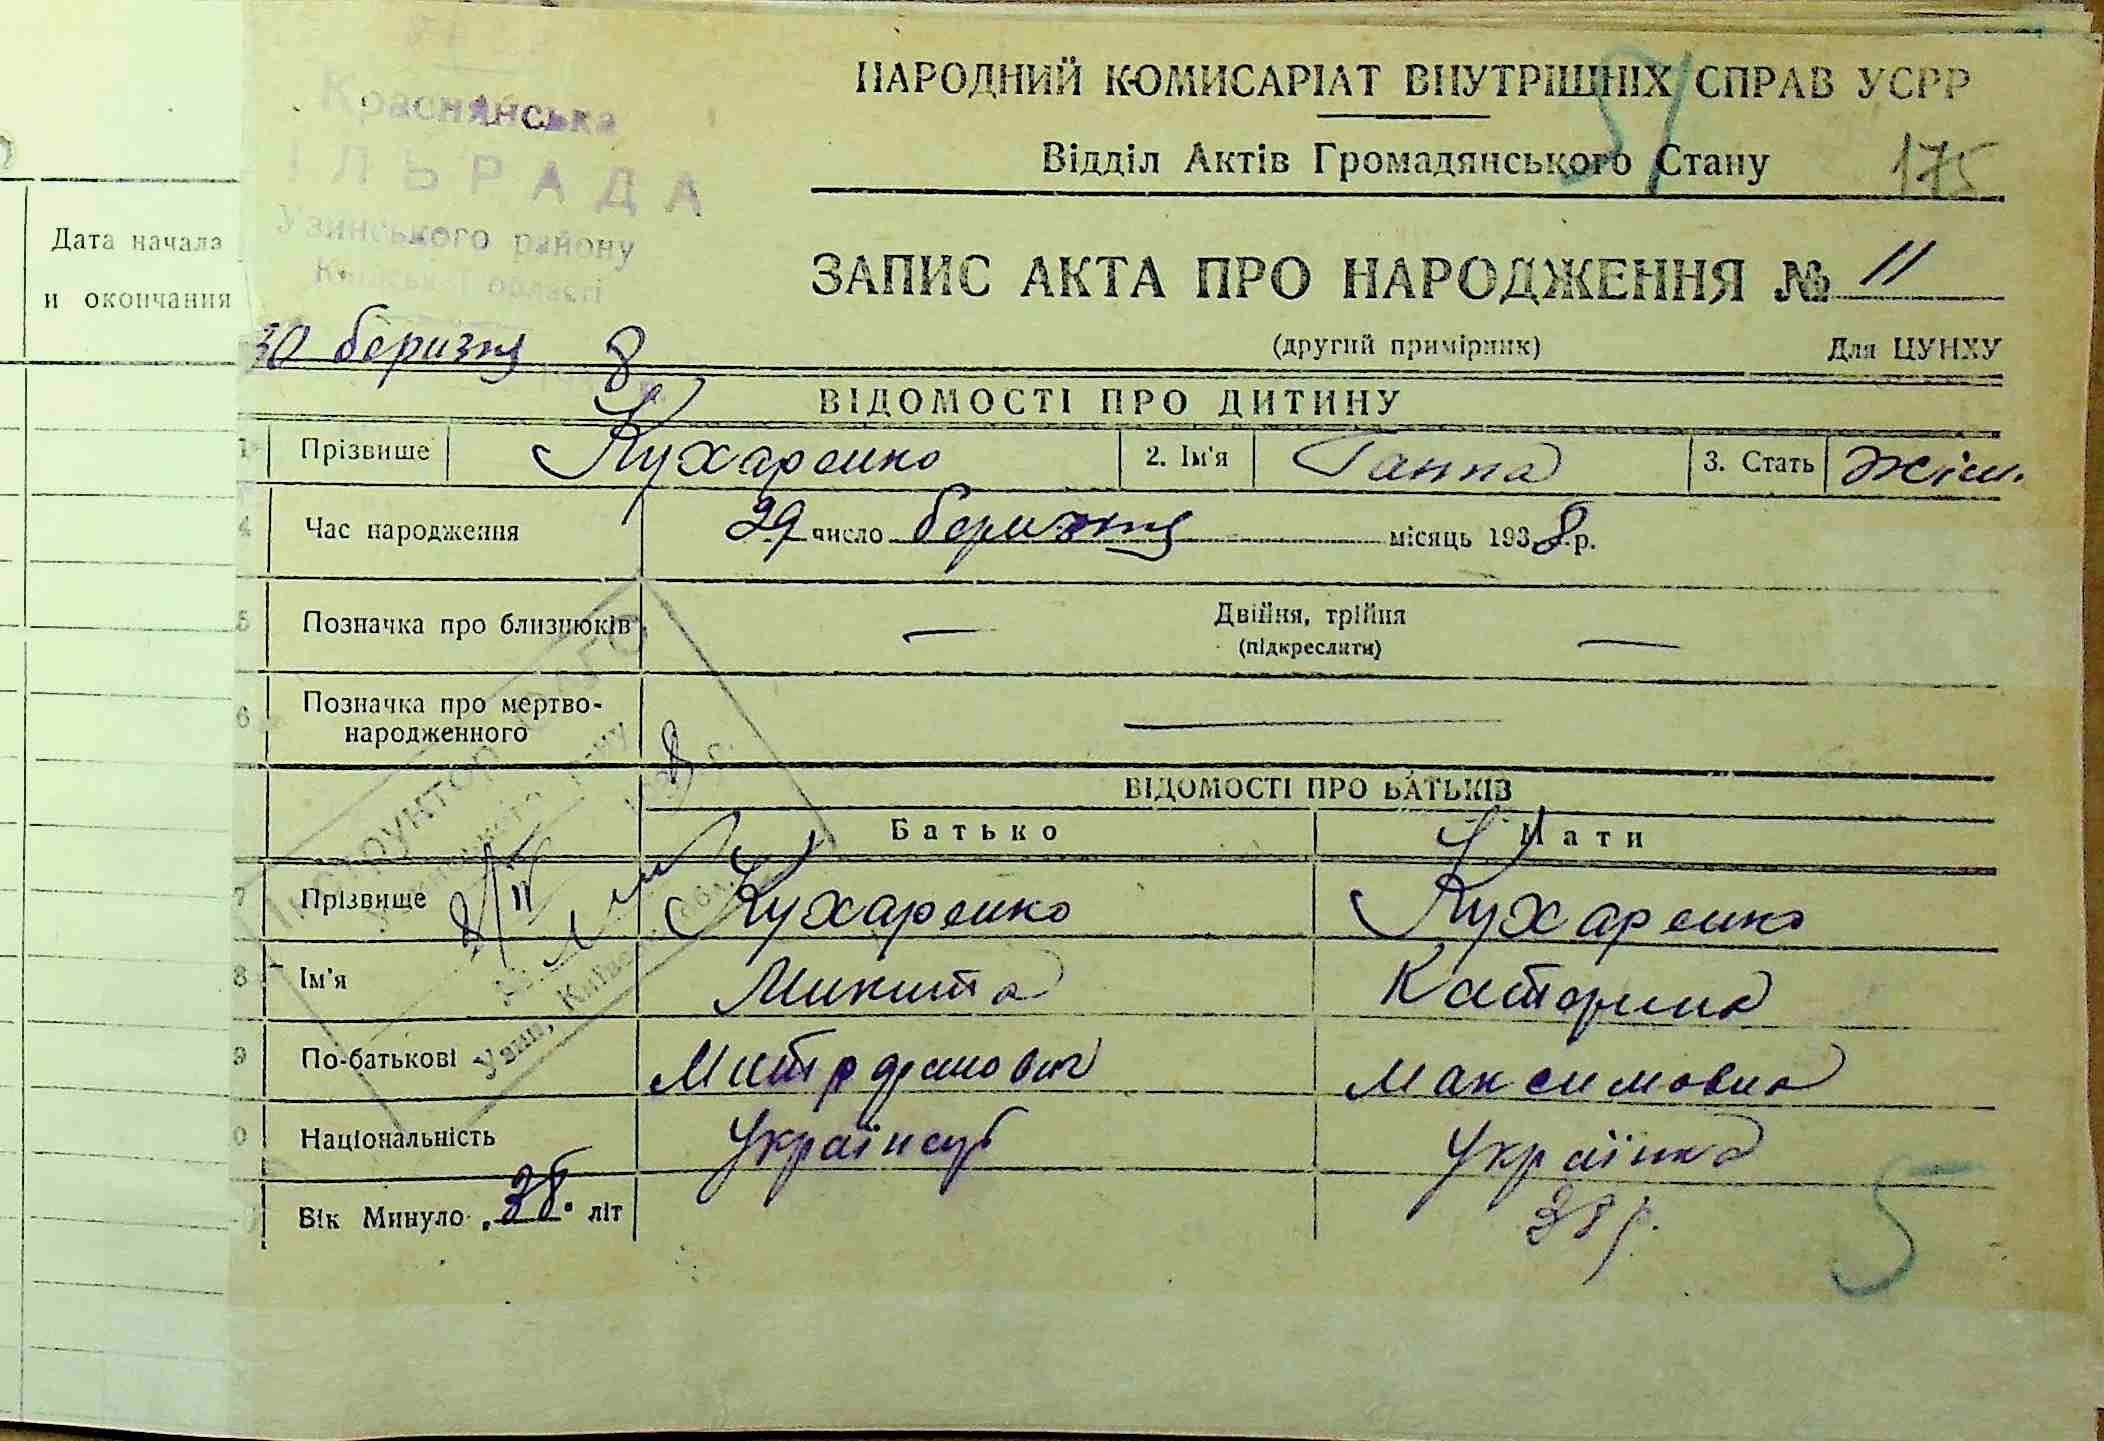 Дата начала
и окончания
Краснянська
ІЛЬРАДА
Узинського району
Київської області
30 березня 8
НАРОДНИЙ КОМИСАРІАТ ВНУТРІШНІХ СПРАВ УСРР
51
Відділ Актів Громадянського Стану
175
ЗАПИС АКТА ПРО НАРОДЖЕННЯ № 11
(другий примірник) Для ЦУНХУ
ВІДОМОСТІ ПРО ДИТИНУ
1 Прізвище Кухаренко 2. Ім'я Ганна 3. Стать жін.
4 Час народження 29 число березня місяць 1938 р.
5 Позначка про близнюків — Двійня, трійня —
(підкреслити)
6 Позначка про мертво-
народженного —
ВІДОМОСТІ ПРО БАТЬКІВ
Батько Мати
7 Прізвище Кухаренко Кухаренко
8 Ім'я Микита Катерина
9 По-батькові Митрофанович Максимовна
0 Національність Українец Українка
Вік Минуло „38" літ 38 р.
Узин, Київс
5